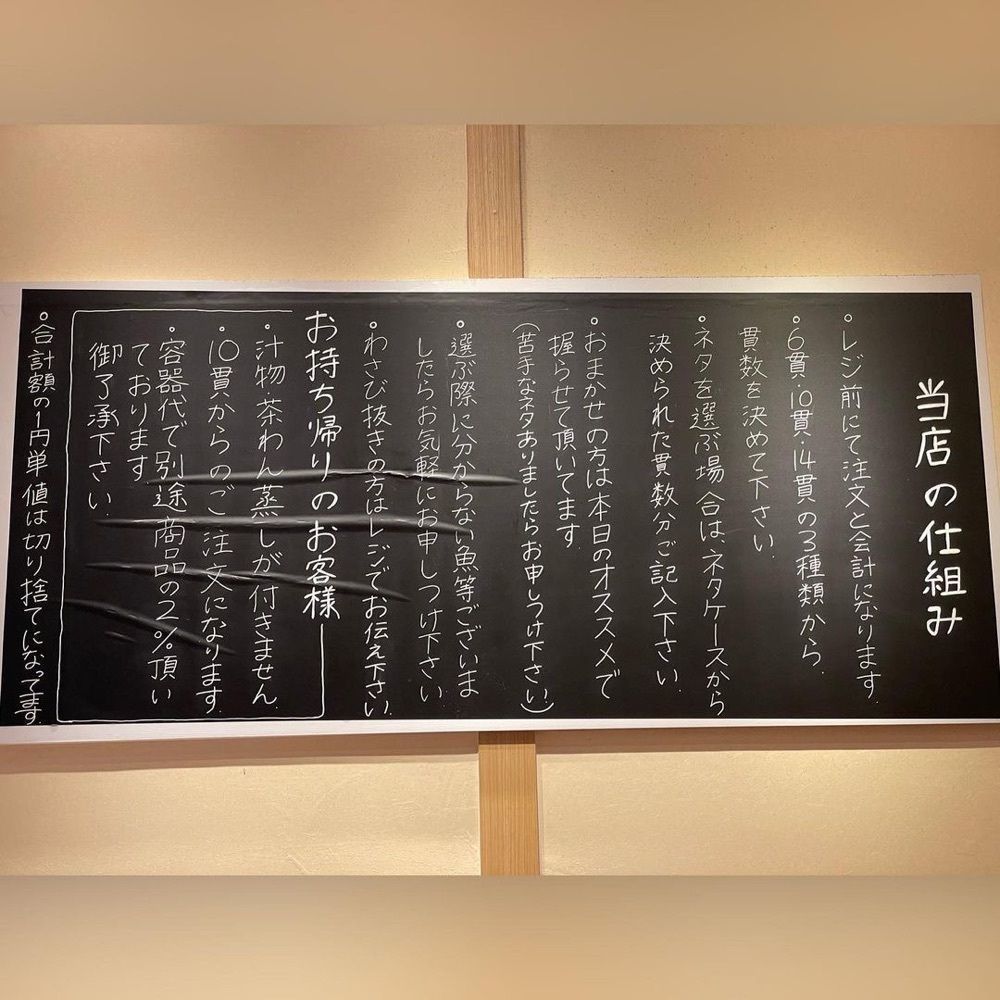 当店の仕組み
・レジ前にて注文と会計になります.
・6貫・10貫・14貫の3種類から
貫数を決めて下さい.
・ネタを選ぶ場合は、ネタケースから
決められた貫数分ご記入下さい.
・おまかせの方は本日のオススメで
握らせて頂いてます.
(苦手なネタありましたらお申しつけ下さい)
・選ぶ際に分からない魚等ございま
したらお気軽にお申しつけ下さい.
・わさび抜きの方はレジでお伝え下さい.
お持ち帰りのお客様
・汁物 茶わん蒸しが付きません
・10貫からのご注文になります.
・容器代で別途商品の2%頂い
ております
御了承下さい.
・合計額の1円単値は切り捨てになってます.